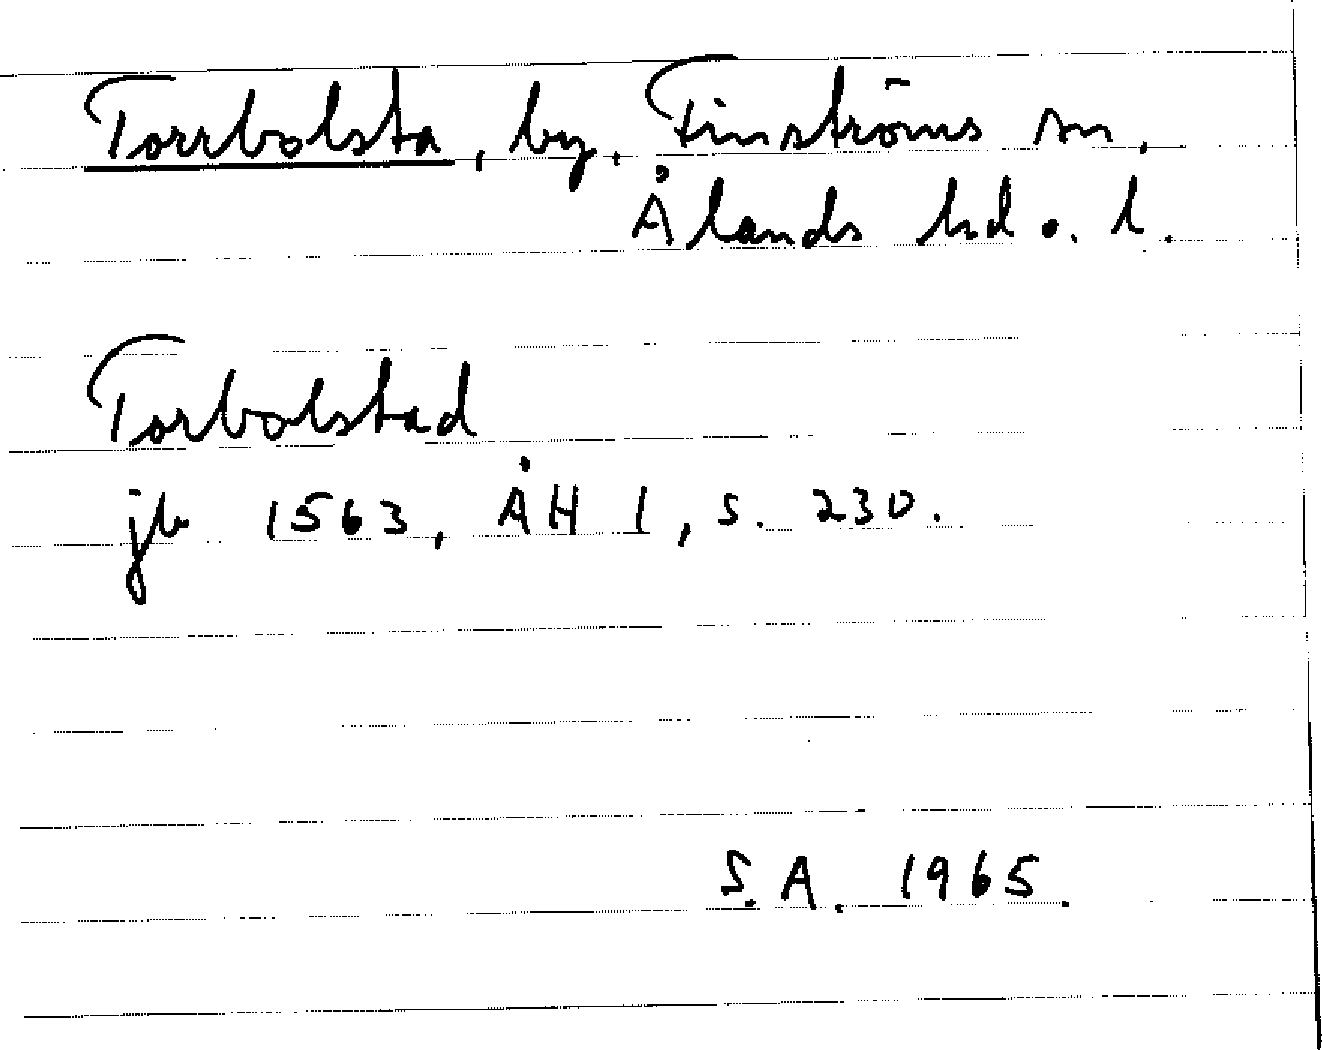 Torrbolsta, by, Finströms sn,
Ålands hd o. l.
Torbolstad
jb 1563, ÅH I, s. 230.
S.A. 1965.